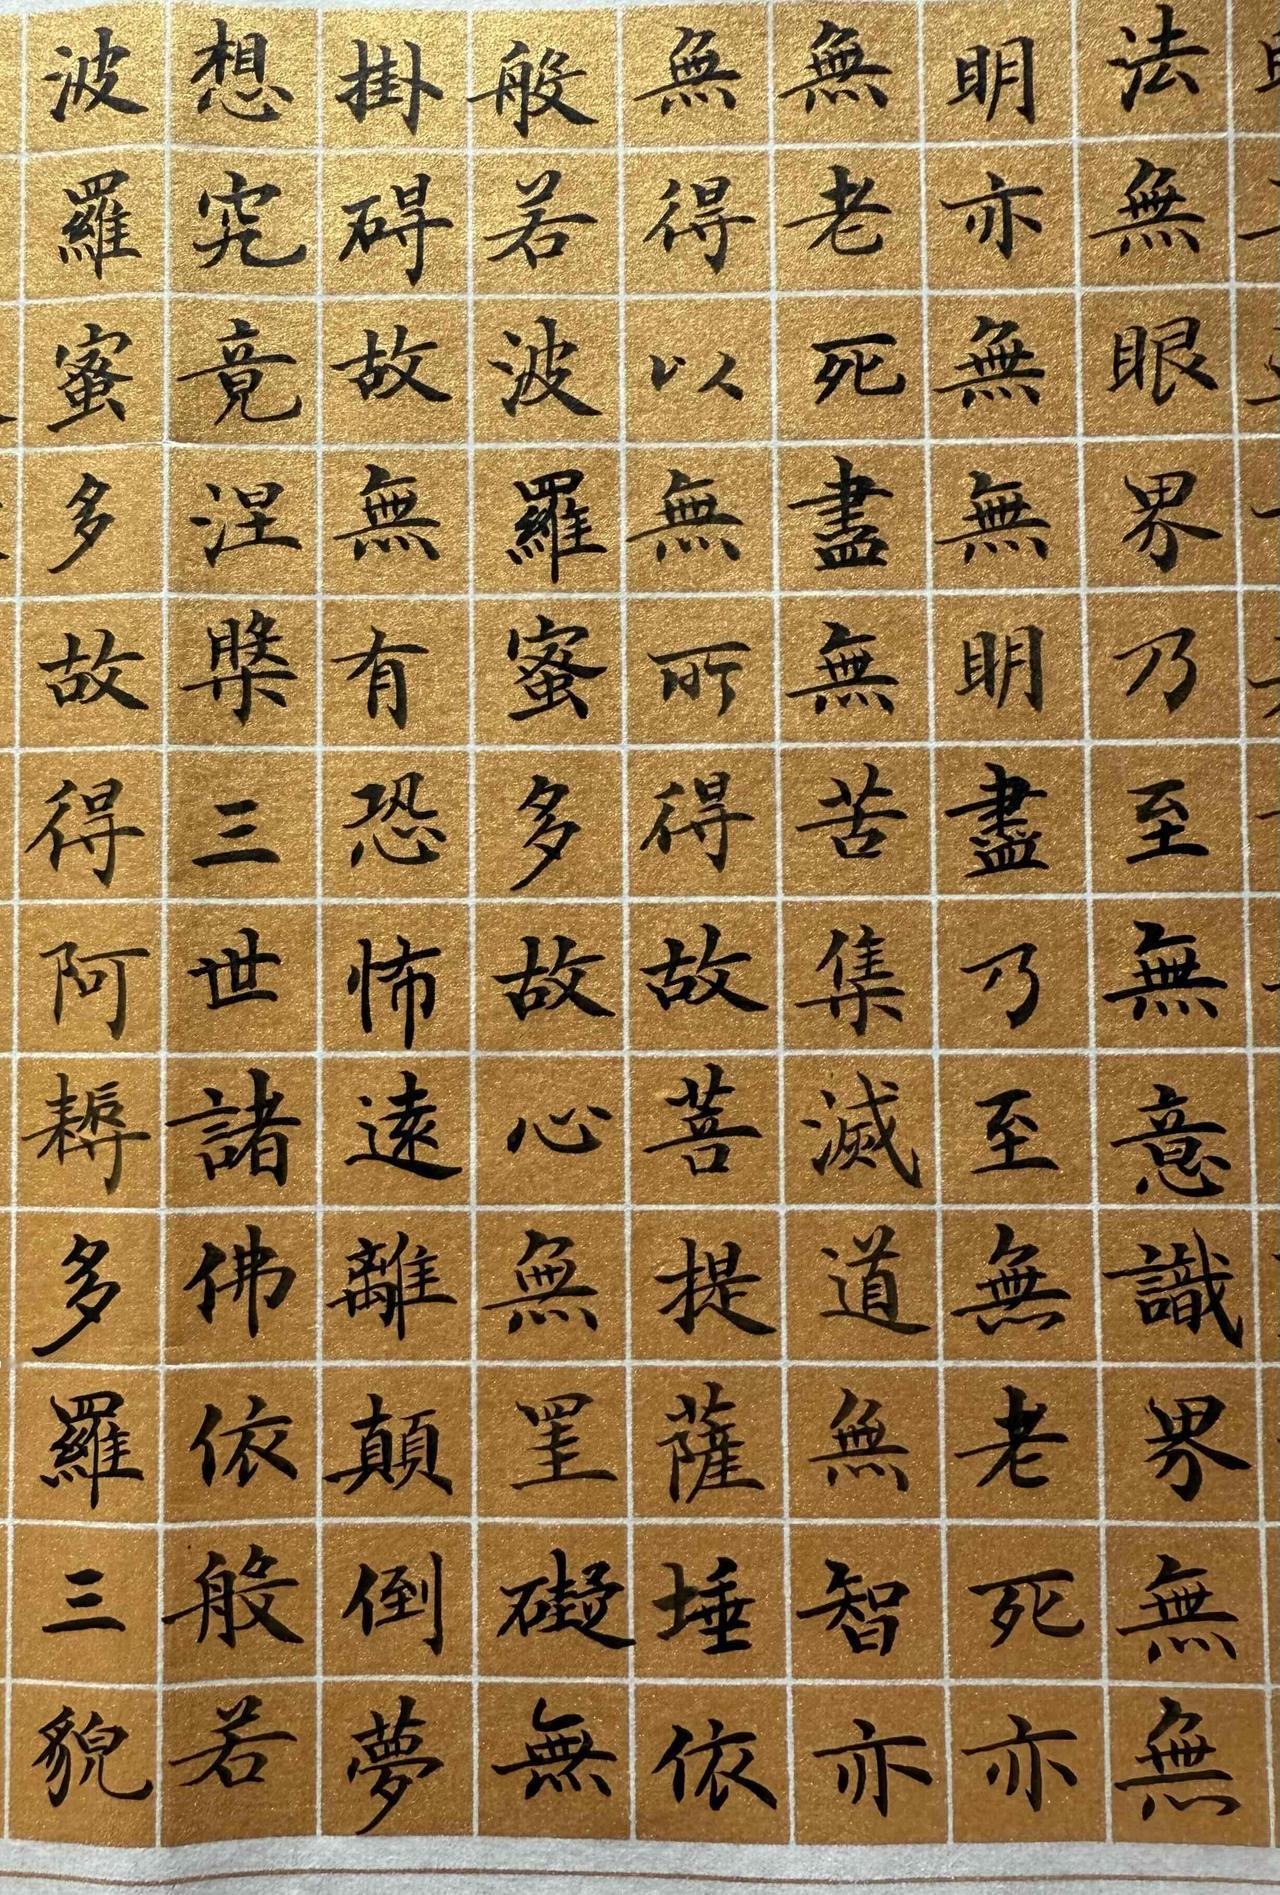 法無眼界乃至無意識界無無
明亦無無明盡乃至無老死亦
無老死盡無苦集滅道無智亦
無得以無所得故菩提薩埵依
般若波羅蜜多故心無罣礙無
掛碍故無有恐怖遠離顛倒夢
想究竟涅槃三世諸佛依般若
波羅蜜多故得阿耨多羅三貌